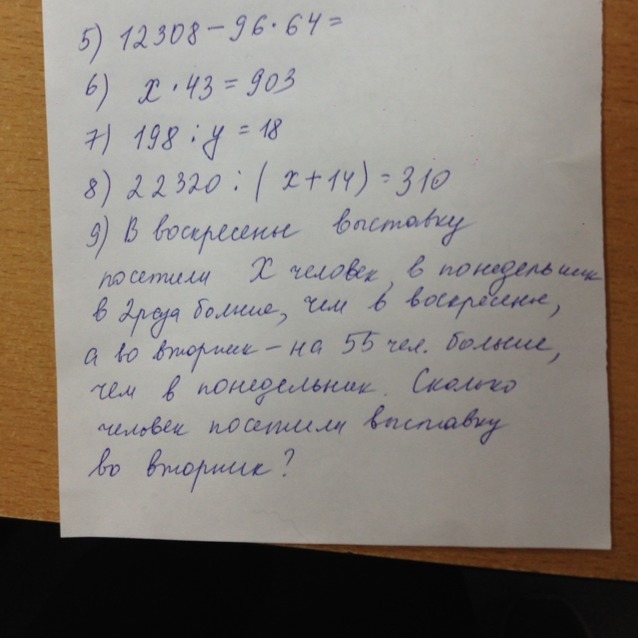 5) 12308 - 96 · 64 =
6) x · 43 = 903
7) 198 : y = 18
8) 22320 : ( x + 14) = 310
9) В воскресенье выставку
посетили X человек, в понедельник
в 2 раза больше, чем в воскресенье,
а во вторник - на 55 чел. больше,
чем в понедельник. Сколько
человек посетили выставку
во вторник?